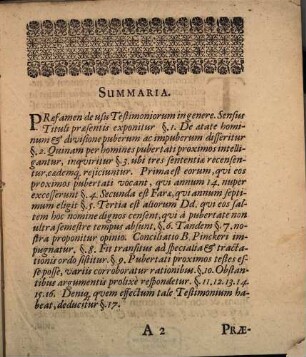 SUMMARIA.
PRæfamen de usu Testimoniorum in genere. Sensus
Tituli præsentis exponitur §. 1. De ætate homi-
num & divisione puberum ac impuberum disseritur
§. 2. Quinam per homines pubertati proximos intelli-
gantur, inqviritur §. 3. ubi tres sententiæ recensen-
tur, eædemq; rejiciuntur. Prima est eorum, qvi eos
proximos pubertati vocant, qvi annum 14. nuper
excesserunt §. 4. Secunda est Faræ, qvi annum septi-
mum elegit §. 5. Tertia est aliorum Dd. qvi eos sal-
tem hoc nomine dignos censent, qvi à pubertate non
ultra semestre tempus absunt, §. 6. Tandem §. 7. no-
stra proponitur opinio. Conciliatio B. Pinckeri im-
pugnatur, §. 8. Fit transitus ad specialia & tracta-
tionis ordo sistitur. §. 9. Pubertati proximos testes es-
se posse, variis corroboratur rationibus. §. 10. Obstan-
tibus argumentis prolixè respondetur. §. 11. 12. 13. 14.
15. 16. Deniq; quem effectum tale Testimonium ha-
beat, deducitur §. 17.
A 2
PRÆ-